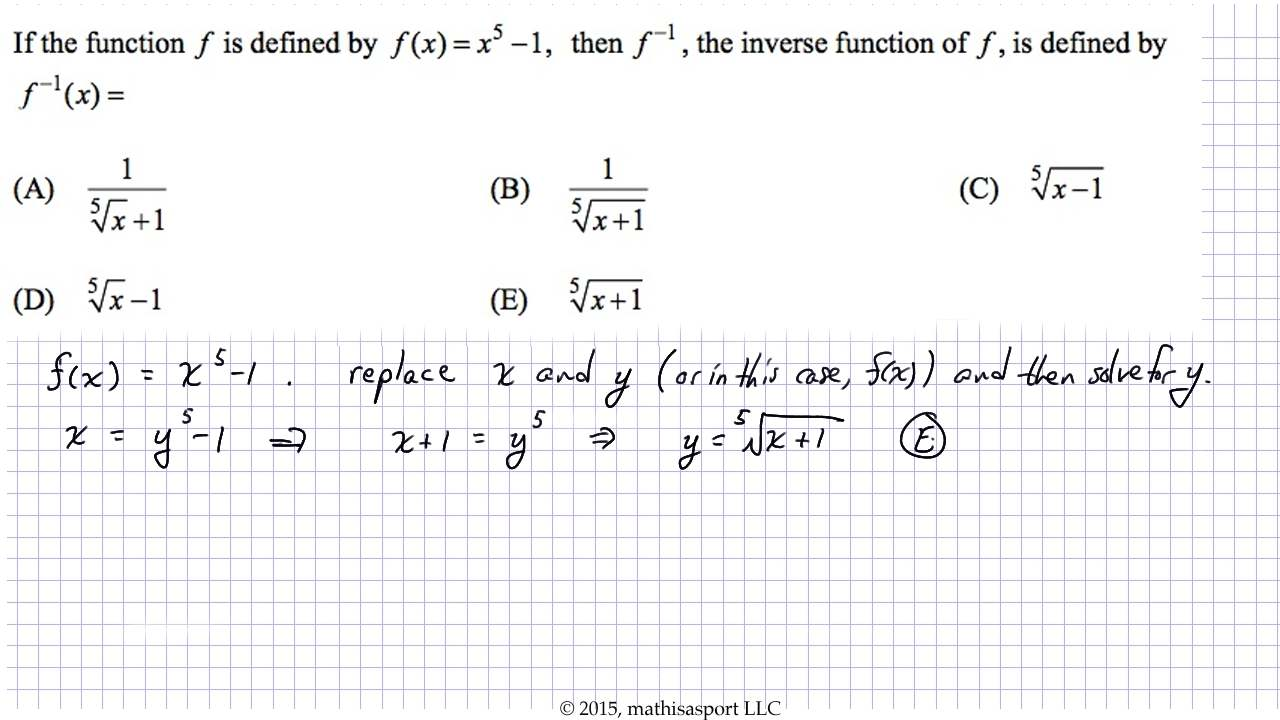 If the function f is defined by f(x) = x⁵ – 1, then f⁻¹, the inverse function of f, is defined by
f⁻¹(x) =
(A) 1/(⁵√x + 1) (B) 1/⁵√(x + 1) (C) ⁵√(x – 1)
(D) ⁵√x – 1 (E) ⁵√(x + 1)
f(x) = x⁵ - 1 . replace x and y (or in this case, f(x)) and then solve for y.
x = y⁵ - 1 ⇒ x + 1 = y⁵ ⇒ y = ⁵√(x + 1) (E)
© 2015, mathisasport LLC